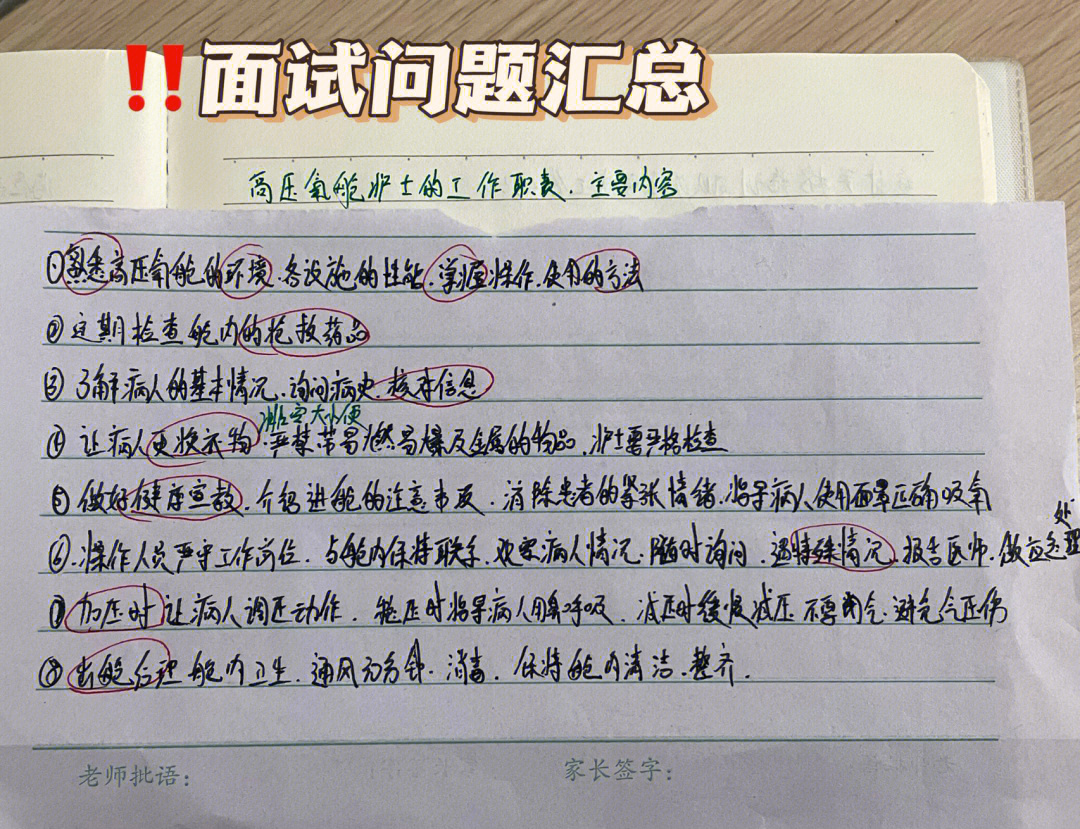 ‼️面试问题汇总
高压氧舱护士的工作职责、主要内容
①熟悉高压氧舱的环境、各设施的性能、掌握操作、使用的方法
②定期检查舱内的抢救药品
③了解病人的基本情况、询问病史、核对信息
排空大小便
④让病人更换衣物、严禁带易燃易爆及金属的物品、护士需严格检查
⑤做好健康宣教、介绍进舱的注意事项、消除患者的紧张情绪、指导病人使用面罩正确吸氧
处
⑥操作人员严守工作岗位、与舱内保持联系、观察病人情况、随时询问、遇特殊情况、报告医师、做应处理
⑦加压时让病人调压动作、稳压时指导病人用鼻呼吸、减压时缓慢减压不要闭气、避免气压伤
⑧出舱后理舱内卫生、通风30分钟、消毒、保持舱内清洁、整齐.
老师批语:
家长签字: